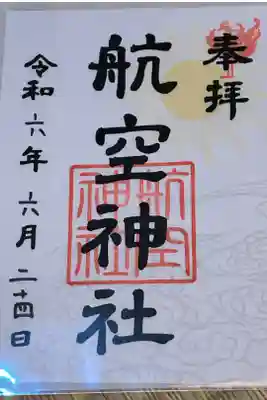 奉拝
航空神社
航空神社
令和六年六月二十四日